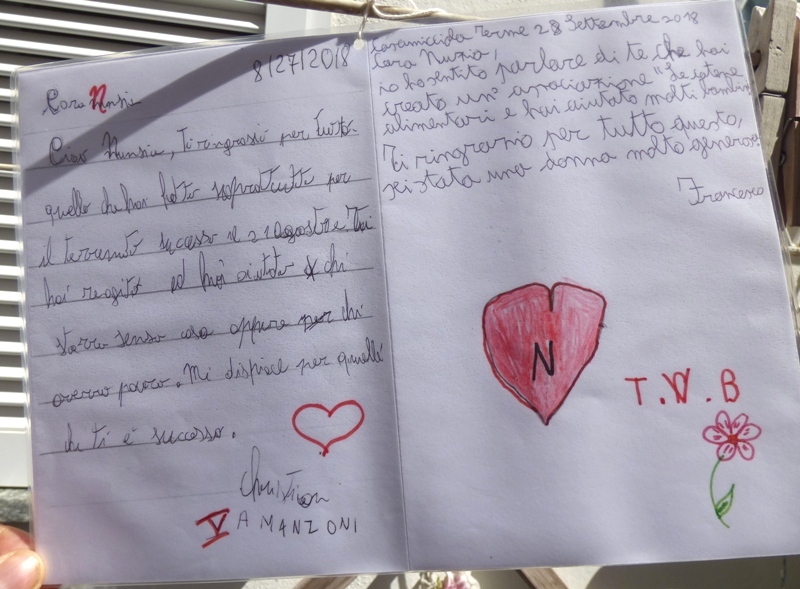 8/27/2018
Cara Nunsia
Ciao Nunsia, Ti ringrosio per tutto
quello che hai fatto soprattutto per
il terremoto sucesso il 21 agosto e Tu
hai reagito ed hai aiutato chi
stava senso casa oppure per chi
overro povoro. Mi dispiace per quello
che ti e' successo.
Christian
V A MANZONI
Casamicciola Terme 28 Settembre 2018
Cara Nunzia,
io ho sentito parlare di te che hai
creato un' associazione
alimentari e hai aiutato molti bambini
Ti ringrazio per tutto questo,
sei stata una donna molto generosa.
Francesco
N
T.V.B